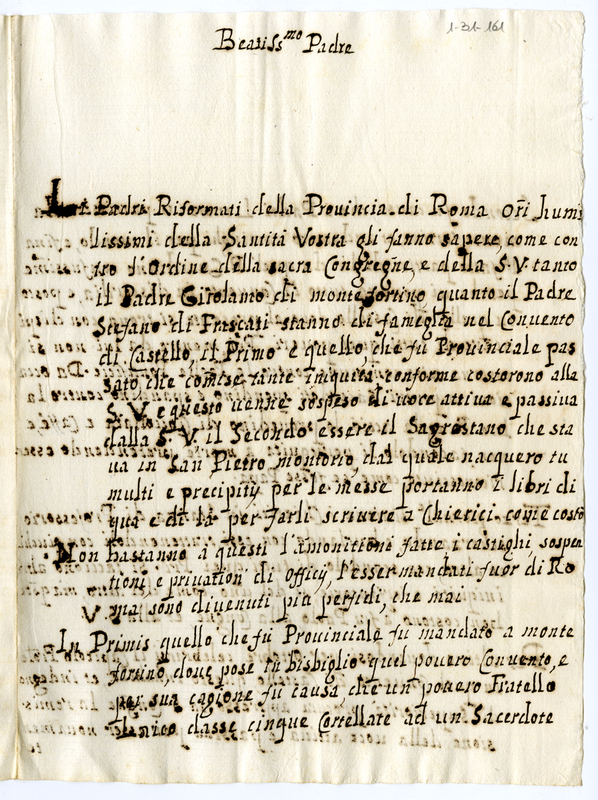 1-31-161
Beatiss.mo Padre
Padri Riformati della Provincia di Roma Ori humi
lissimi della Santità Vostra gli fanno sapere, come con
tro d'Ordine della sacra Congregne, e della S. V. tanto
il Padre Girolamo di montefortino, quanto il Padre
Stefano di Frascati stanno di fameglia nel Convento
di Castello, il Primo è quello che fù Prouinciale pas
sato che comise tante iniquità conforme costorono alla
S. V. e questo uenne sospeso di uoce attiua e passiua
dalla S. V. il Secondo essere il Sagrestano che sta
ua in San Pietro montorio, dal quale nacquero tu
multi e precipitij per le messe portanno i libri di
qua e di là per farli scriuere a Chierici come costò
Non bastanno à questi l'amonittioni fatte, i castighi, sospen
tioni, e priuation di Officij, l'esser mandati fuor di Ro
ma sono diuenuti più perfidi, che mai
In Primis quello che fù Prouinciale fù mandato a monte
fortino, doue pose tù bisbiglio quel pouero Conuento, e
per sua cagione fù causa, che un pouero Fratello
Laico dasse cinque Cortellate ad un Sacerdote